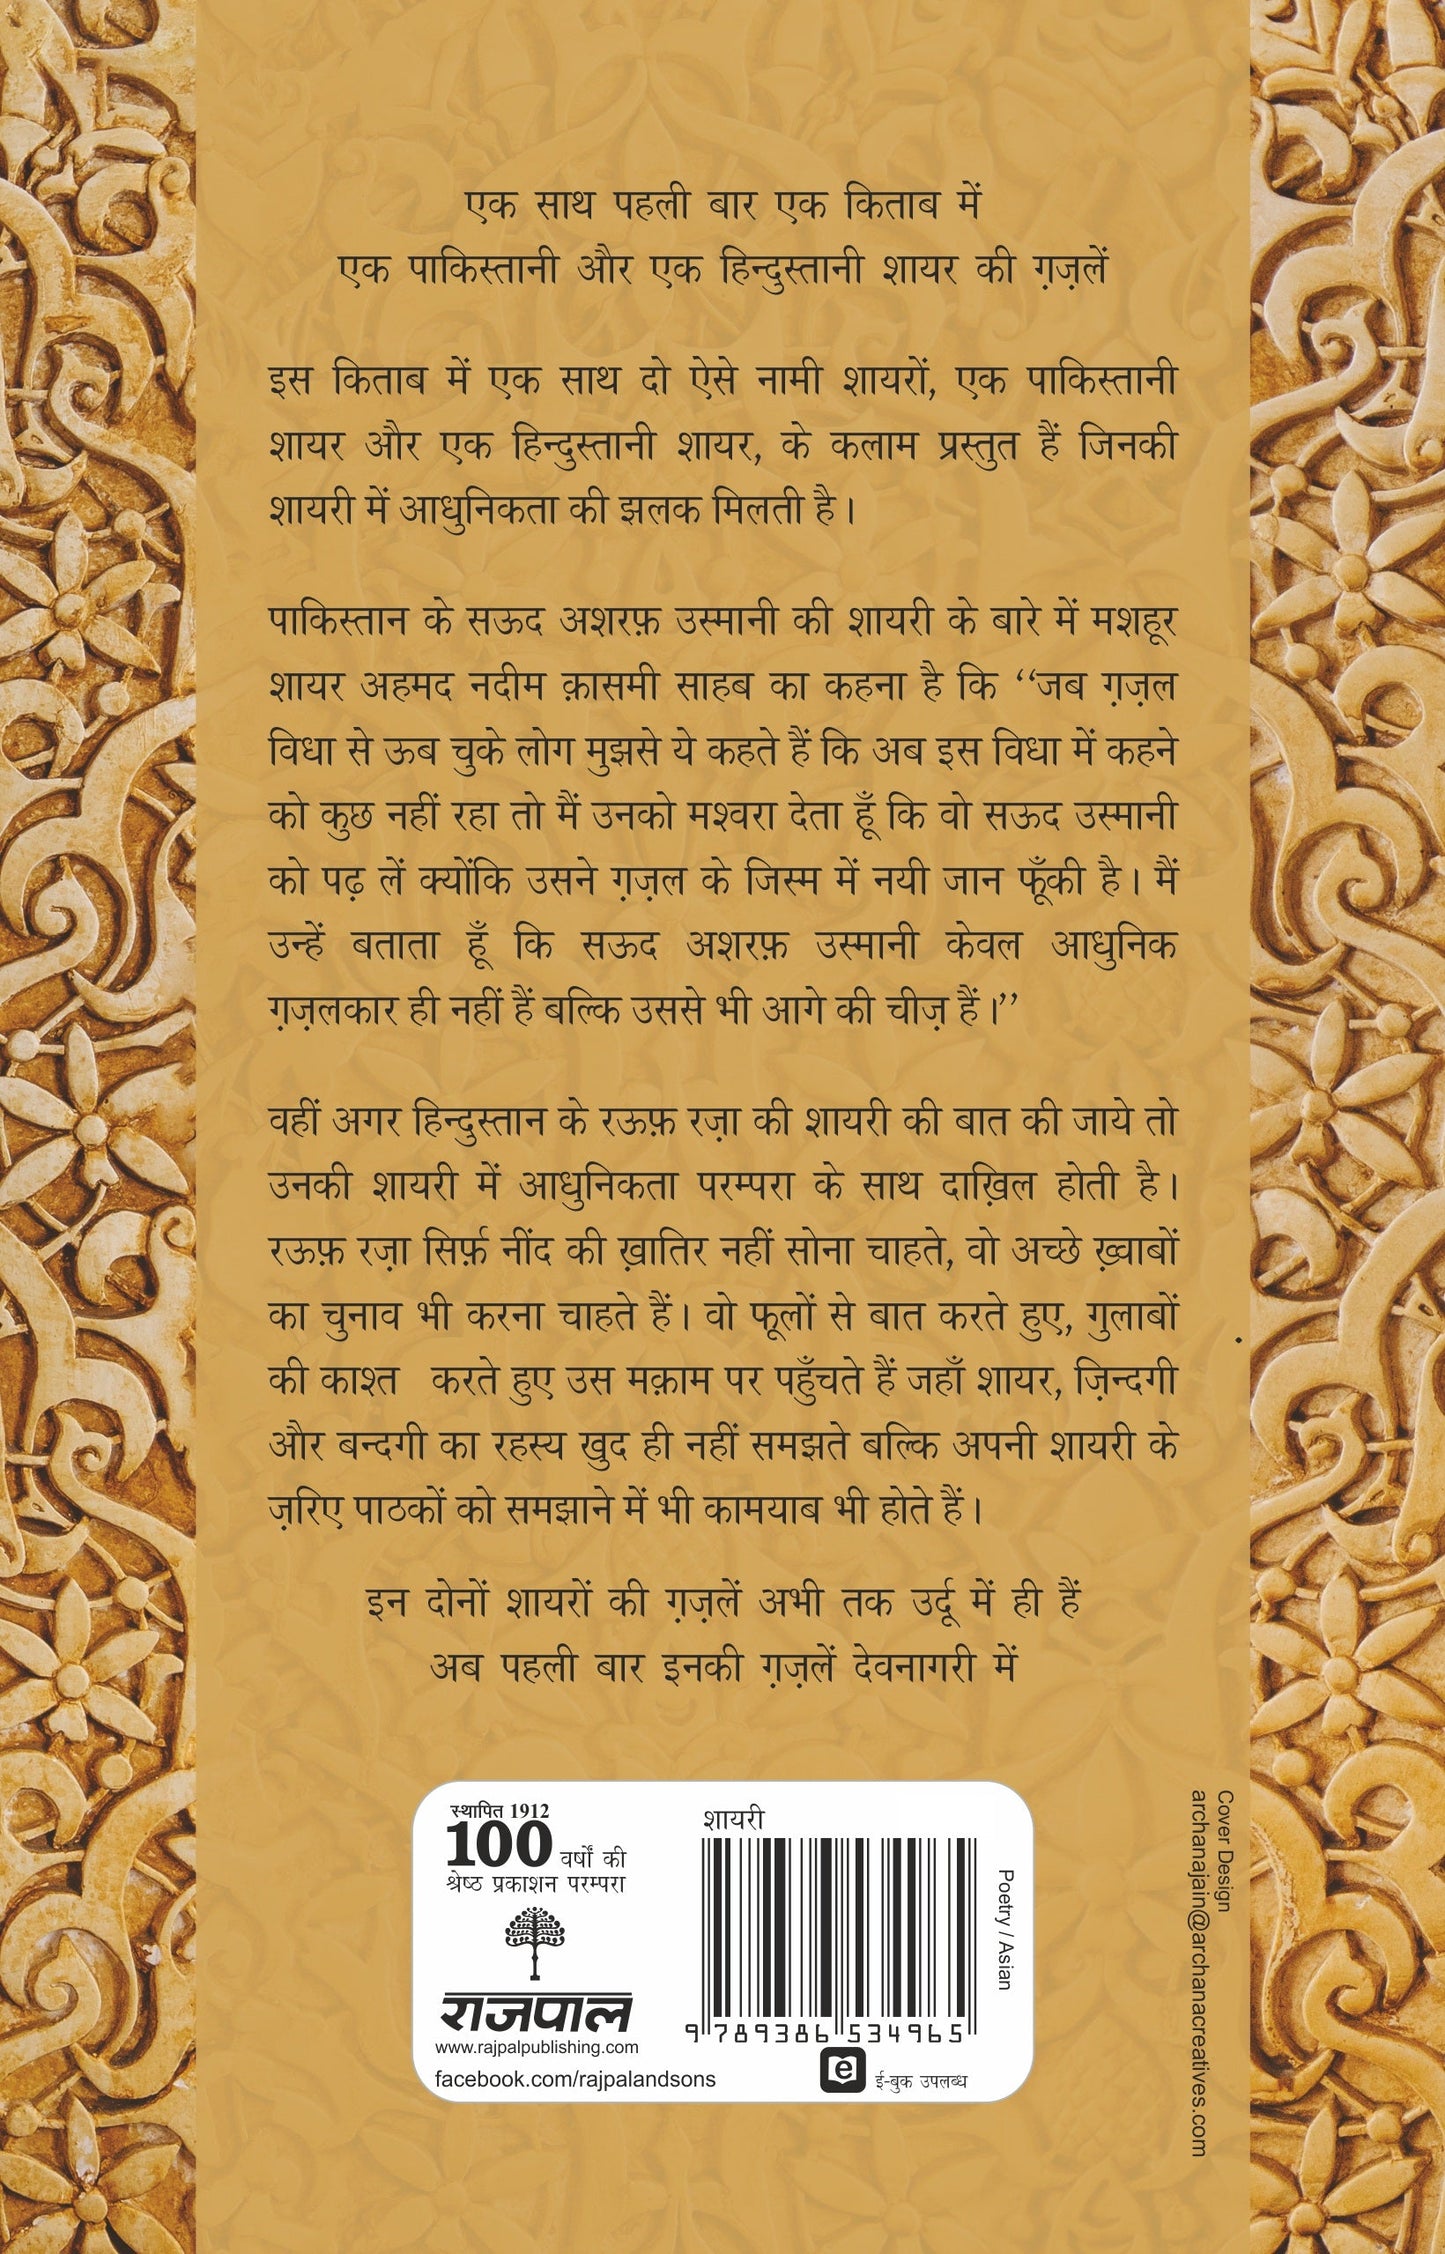 एक साथ पहली बार एक किताब में
एक पाकिस्तानी और एक हिन्दुस्तानी शायर की ग़ज़लें
इस किताब में एक साथ दो ऐसे नामी शायरों, एक पाकिस्तानी
शायर और एक हिन्दुस्तानी शायर, के कलाम प्रस्तुत हैं जिनकी
शायरी में आधुनिकता की झलक मिलती है।
पाकिस्तान के सऊद अशरफ़ उस्मानी की शायरी के बारे में मशहूर
शायर अहमद नदीम क़ासमी साहब का कहना है कि “जब ग़ज़ल
विधा से ऊब चुके लोग मुझसे ये कहते हैं कि अब इस विधा में कहने
को कुछ नहीं रहा तो मैं उनको मश्वरा देता हूँ कि वो सऊद उस्मानी
को पढ़ लें क्योंकि उसने ग़ज़ल के जिस्म में नयी जान फूँकी है। मैं
उन्हें बताता हूँ कि सऊद अशरफ़ उस्मानी केवल आधुनिक
ग़ज़लकार ही नहीं हैं बल्कि उससे भी आगे की चीज़ हैं।”
वहीं अगर हिन्दुस्तान के रऊफ़ रज़ा की शायरी की बात की जाये तो
उनकी शायरी में आधुनिकता परम्परा के साथ दाख़िल होती है।
रऊफ़ रज़ा सिर्फ़ नींद की ख़ातिर नहीं सोना चाहते, वो अच्छे ख़्वाबों
का चुनाव भी करना चाहते हैं। वो फूलों से बात करते हुए, गुलाबों
की काश्त करते हुए उस मक़ाम पर पहुँचते हैं जहाँ शायर, ज़िन्दगी
और बन्दगी का रहस्य खुद ही नहीं समझते बल्कि अपनी शायरी के
ज़रिए पाठकों को समझाने में भी कामयाब भी होते हैं।
इन दोनों शायरों की ग़ज़लें अभी तक उर्दू में ही हैं
अब पहली बार इनकी ग़ज़लें देवनागरी में
स्थापित 1912
100 वर्षों की
श्रेष्ठ प्रकाशन परम्परा
राजपाल
www.rajpalpublishing.com
facebook.com/rajpalandsons
शायरी
9 789386 534965
e ई-बुक उपलब्ध
Poetry / Asian
Cover Design
archanajain@archanacreatives.com